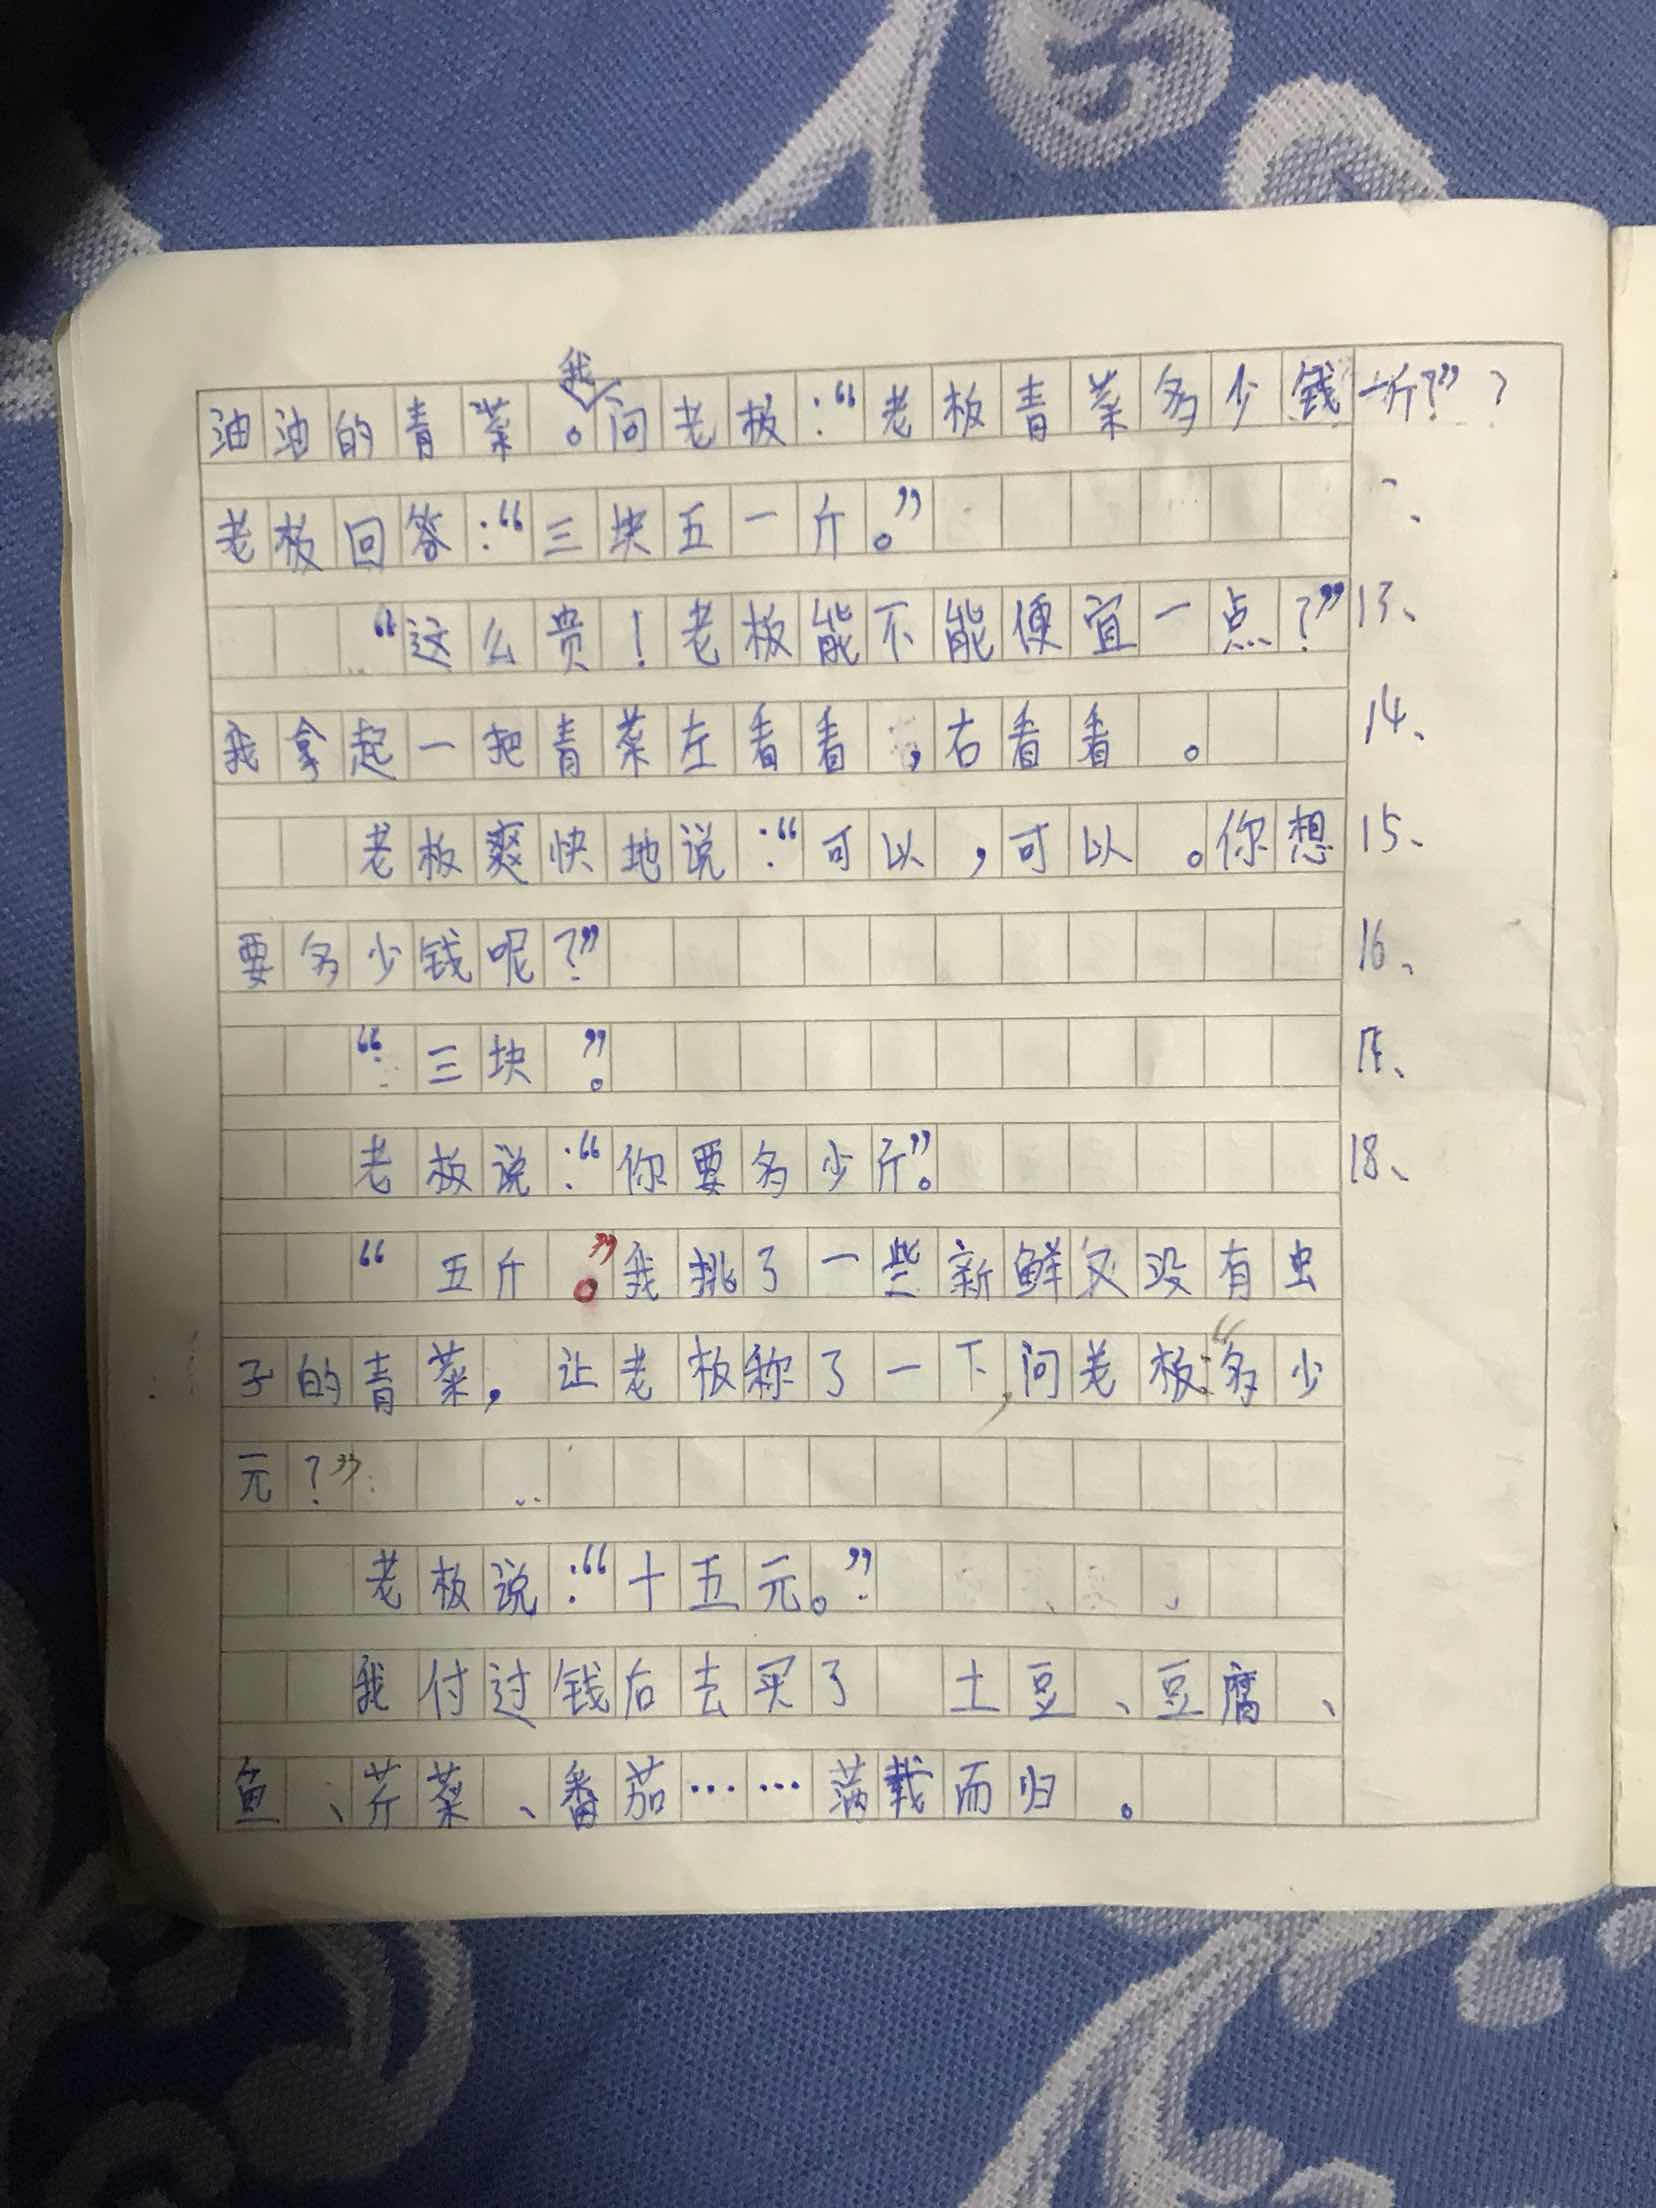 油油的青菜。我问老板:“老板青菜多少钱一斤?”?
老板回答:“三块五一斤。”
“这么贵!老板能不能便宜一点?” 13、
我拿起一把青菜左看看,右看看。 14、
老板爽快地说:“可以,可以。你想 15、
要多少钱呢?” 16、
“三块”。
老板说:“你要多少斤”。 18、
“五斤。”我挑了一些新鲜又没有虫
子的青菜,让老板称了一下,问老板:“多少
元?”
老板说:“十五元。”
我付过钱后去买了 土豆、豆腐、
鱼、芹菜、番茄……满载而归。